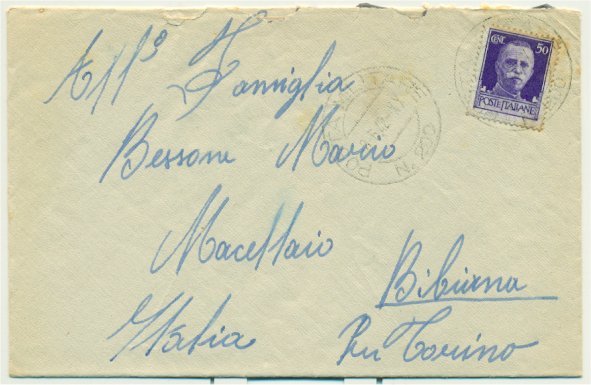 All'a Famiglia
Bessone Mario
Macellaio
Bibiana
Italia
Per Torino
CENT. 50
POSTE ITALIANE
N. 200